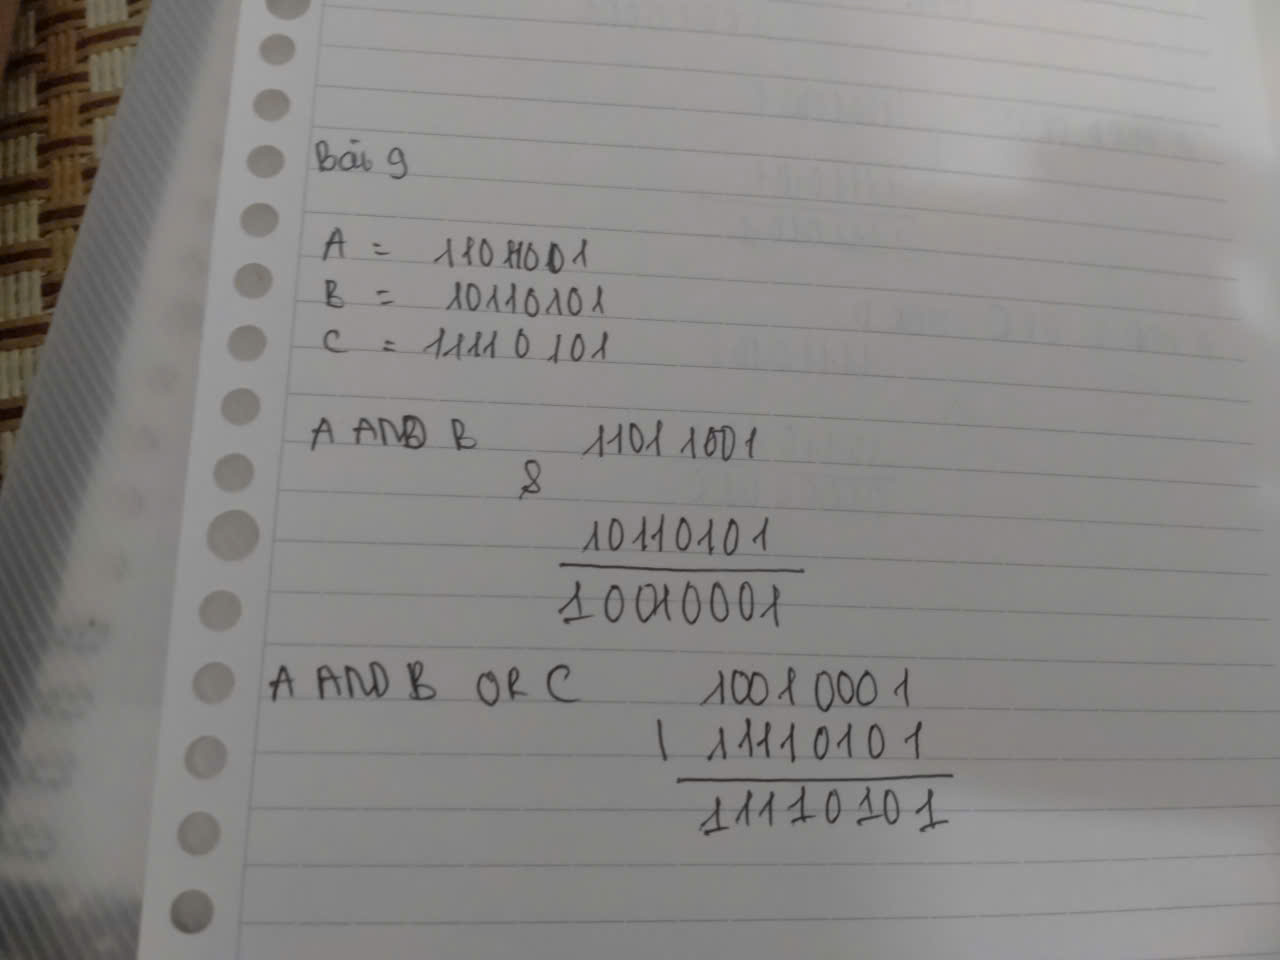 Bài 9
A = 11011001
B = 10110101
C = 11110101
A AND B 11011001
&
10110101
10010001
A AND B OR C 10010001
| 11110101
11110101